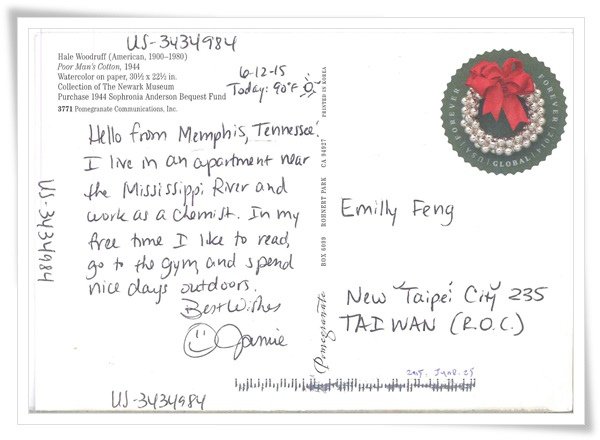 US-3434984
Hale Woodruff (American, 1900–1980)
Poor Man's Cotton, 1944
Watercolor on paper, 30½ x 22½ in.
Collection of The Newark Museum
Purchase 1944 Sophronia Anderson Bequest Fund
3771 Pomegranate Communications, Inc.
6-12-15
Today: 90°F
Hello from Memphis, Tennessee.
I live in an apartment near
the Mississippi River and
work as a chemist. In my
free time I like to read,
go to the gym, and spend
nice days outdoors.
Best Wishes
Jamie
US-3434984
US-3434984
Pomegranate
BOX 6099 ROHNERT PARK CA 94927
PRINTED IN KOREA
FOREVER
FOREVER
USA
GLOBAL
2014
Emilly Feng
New Taipei City 235
TAIWAN (R.O.C.)
2015. June. 25